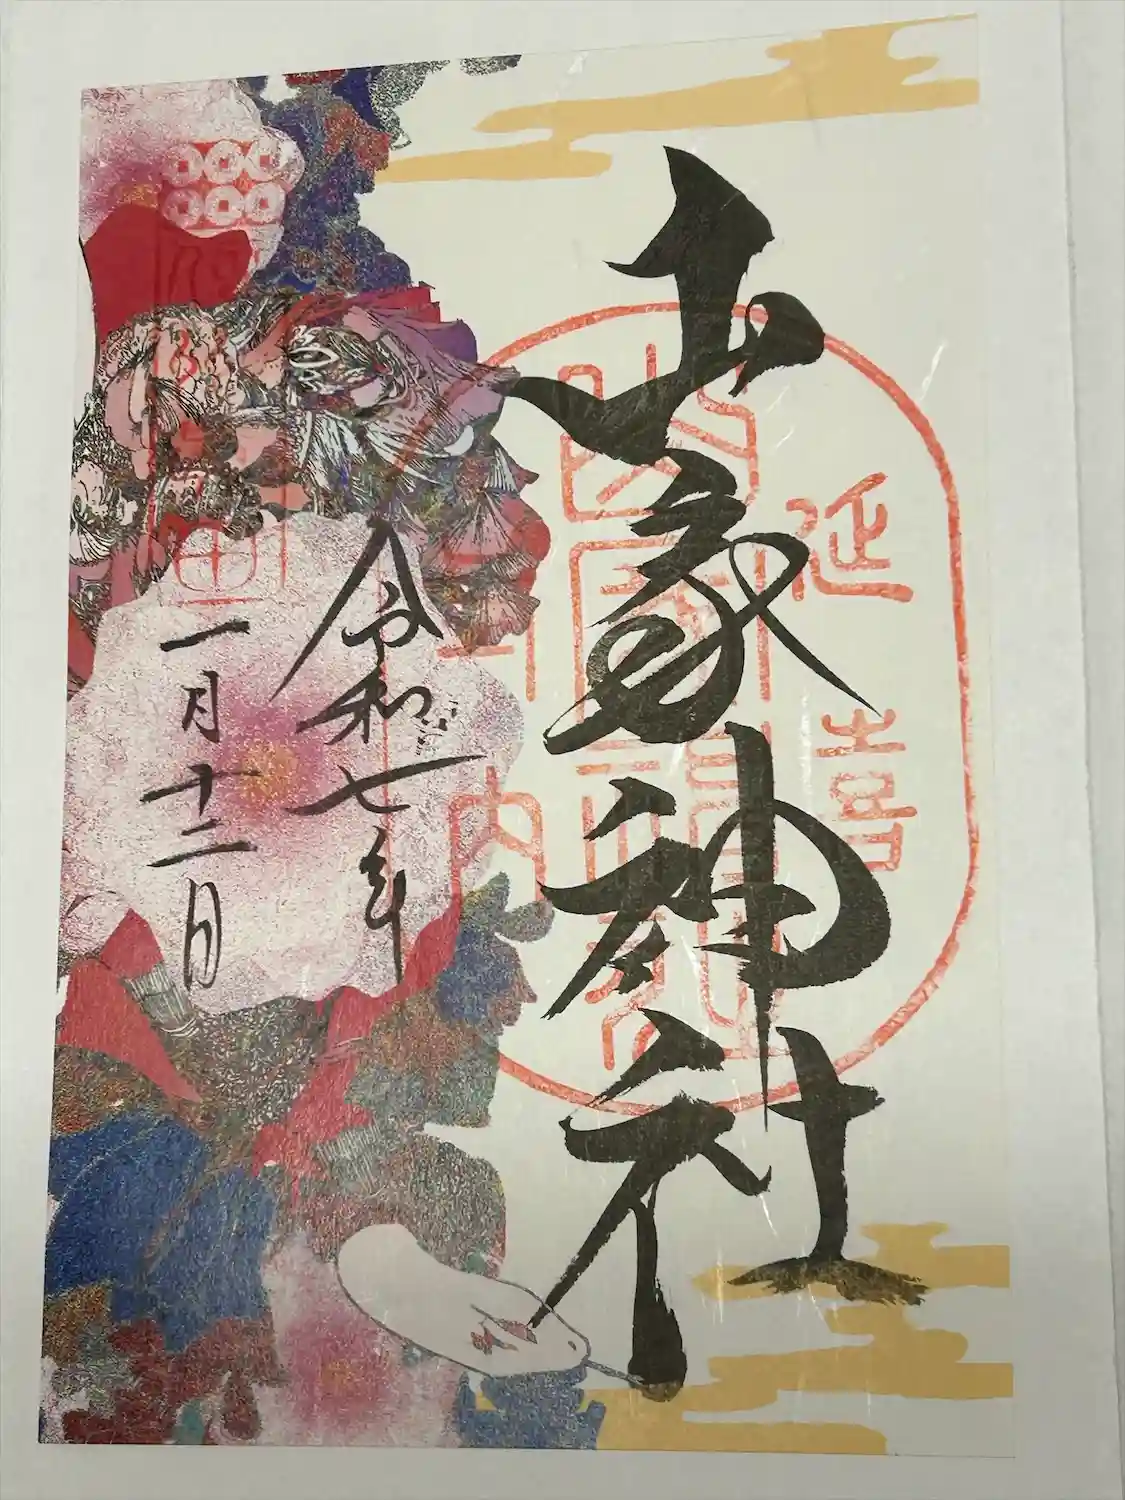 延喜
山家神社
式内
令和七年
一月十二日